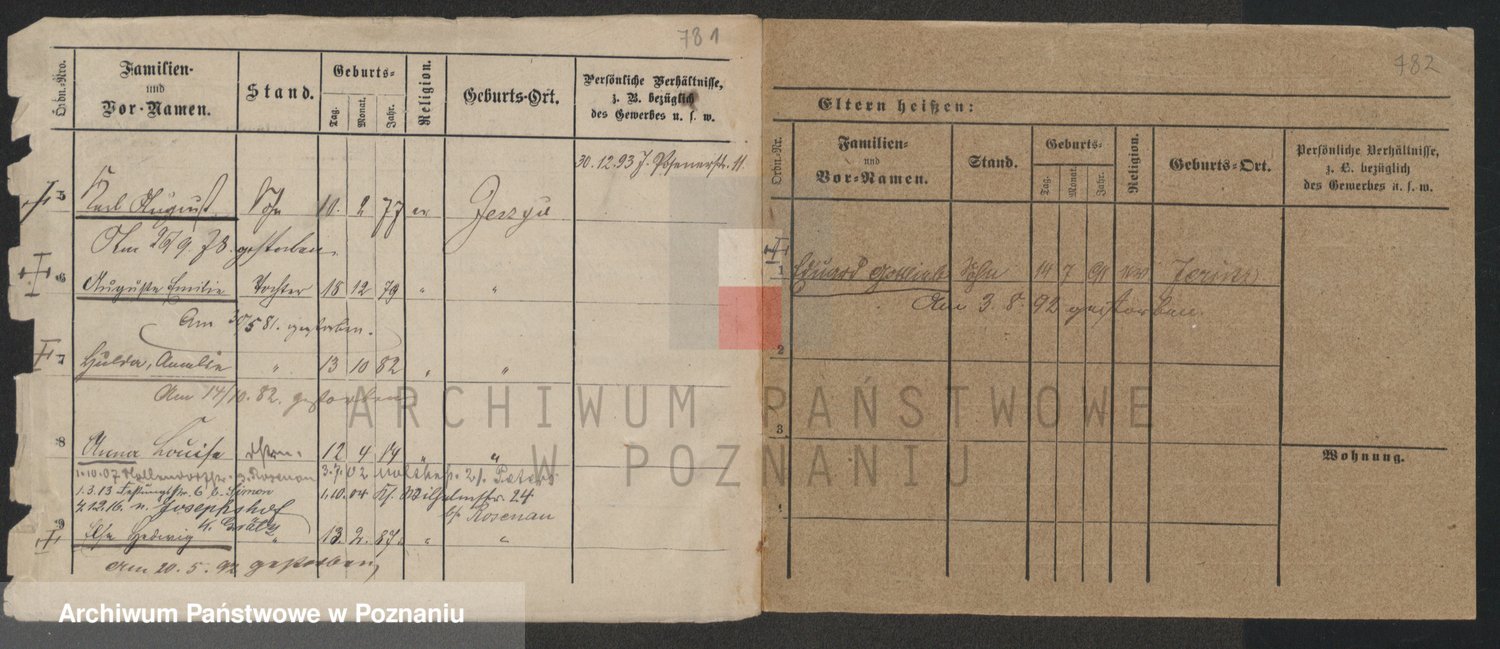 781
Ordn.-Nro.
Familien-
und
Vor-Namen.
Stand.
Geburts-
Tag.
Monat.
Jahr.
Religion.
Geburts-Ort.
Persönliche Verhältnisse,
z. B. bezüglich
des Gewerbes u. s. w.
30.12.93 J. Posenerstr. 11
5 Karl August Sohn 10. 2 77 ev Jerzyce
Am 26/9. 78. gestorben.
6 Auguste Emilie Tochter 18 12 79 " "
Am 30/5 81. gestorben.
7 Hulda, Amalie " 13 10 82 " "
Am 14/10. 82. gestorben
8 Anna Louise 12 4 " "
1.10.07 b. Rosenau 3.7.02 21. Peters
1.3.13 Festungsstr. 6 b. Simon 1.10.04 Kl. Wilhelmstr. 24
4.12.16 n. Josephshof bei Rosenau
k. Grätz
9 Else Hedwig " 13. 2. 87. " "
Am 20. 5. 92 gestorben,
482
Eltern heißen:
Ordn.-Nr.
Familien-
und
Vor-Namen.
Stand.
Geburts-
Tag.
Monat.
Jahr.
Religion.
Geburts-Ort.
Persönliche Verhältnisse,
z. B. bezüglich
des Gewerbes u. s. w.
1 Eduard Gottlieb Sohn 14 7 91 ev Jersitz
Am 3. 8. 92 gestorben.
2
3
Wohnung.
ARCHIWUM PAŃSTWOWE
W POZNANIU
Archiwum Państwowe w Poznaniu